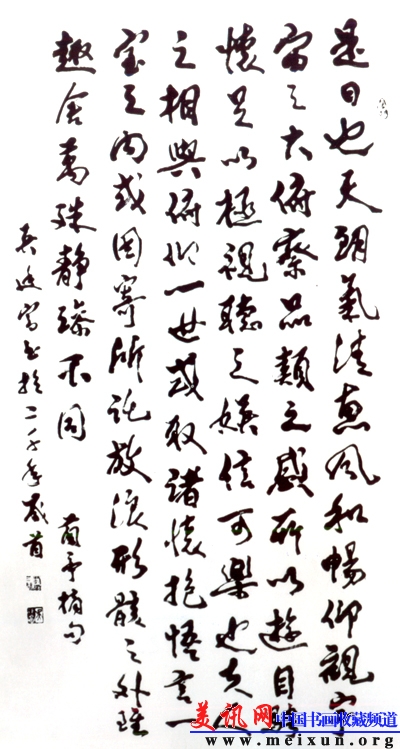 是日也天朗氣清惠風和暢仰觀宇
宙之大俯察品類之盛所以遊目騁
懷足以極視聽之娛信可樂也夫人
之相與俯仰一世或取諸懷抱悟言一
室之內或因寄所託放浪形骸之外雖
趣舍萬殊靜躁不同
蘭亭摘句
富書於二千年歲首
美讯网 中国书画收藏频道
www.meixun.org